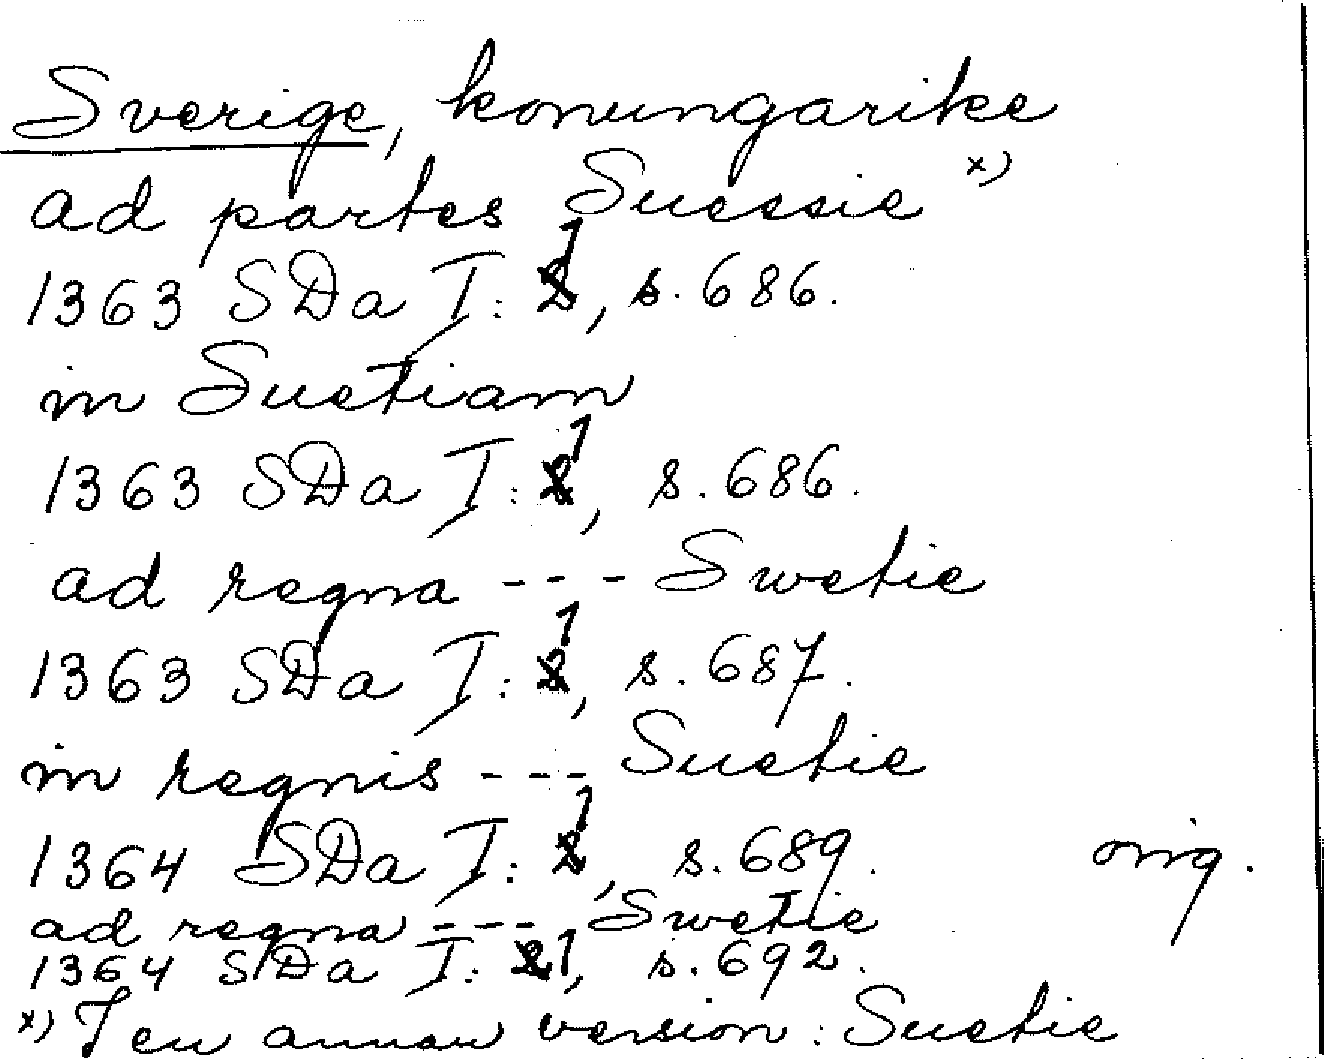 Sverige, konungarike
ad partes Suessie x)
1363 SDa I: 1, s. 686.
in Suetiam
1363 SDa I: 1, s. 686.
ad regna --- Swetie
1363 SDa I: 1, s. 687.
in regnis --- Suetie
1364 SDa I: 1, s. 689. orig.
ad regna --- Swetie
1364 SDa I: 1, s. 692.
x) I en annan version: Suetie